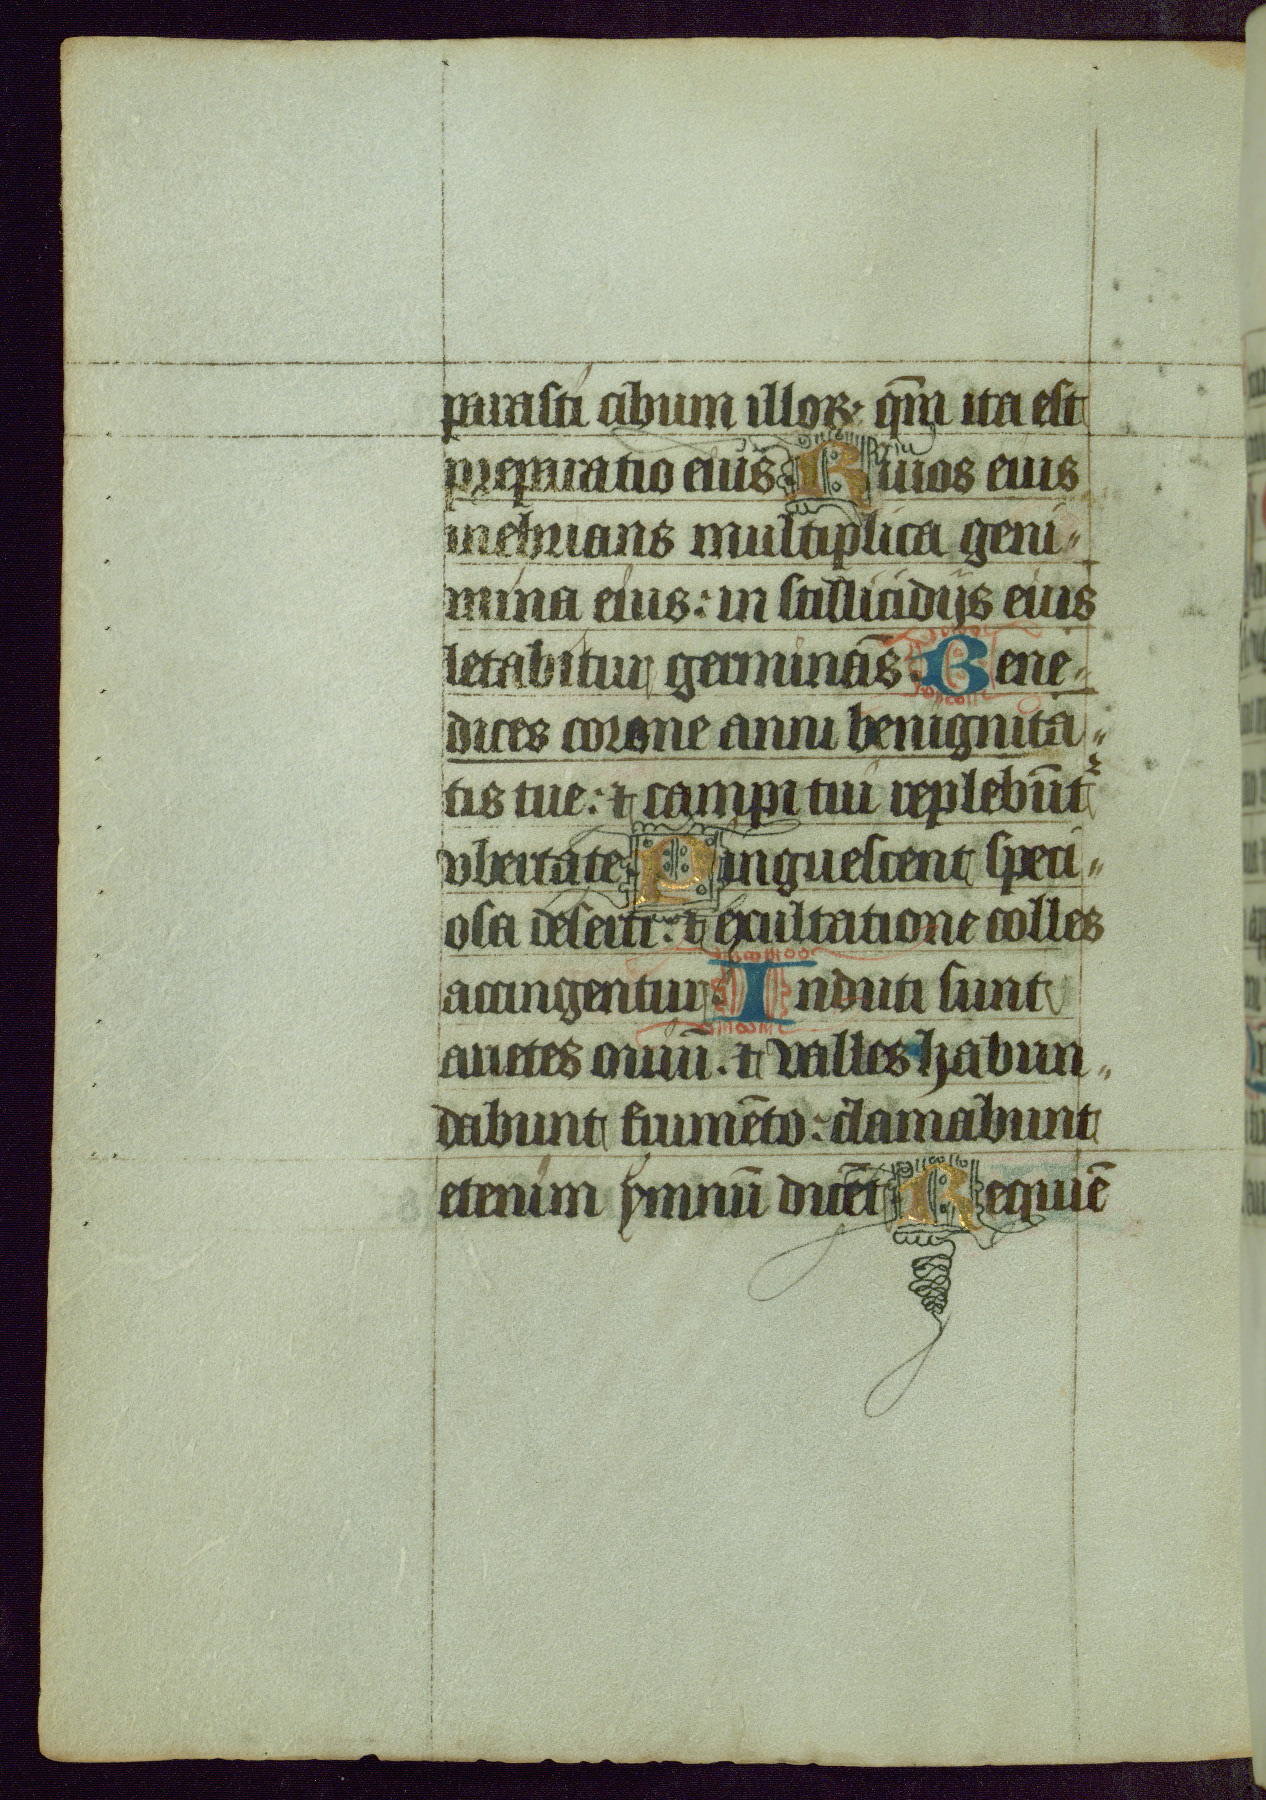 parasti cibum illoꝝ: qm̄ ita est
preparatio eius Riuos eius
inebrians multiplica geni〃
mina eius: in stillicidijs eius
letabitur germinās. Bene〃
dices corone anni benignita〃
tis tue: ⁊ campi tui replebūt᷑
vbertate Pinguescent speci〃
osa deserti: ⁊ exultatione colles
accingentur Induti sunt
arietes ouiū. ⁊ valles habun〃
dabunt frumēto: clamabunt
etenim hymnū dicēt Requiē